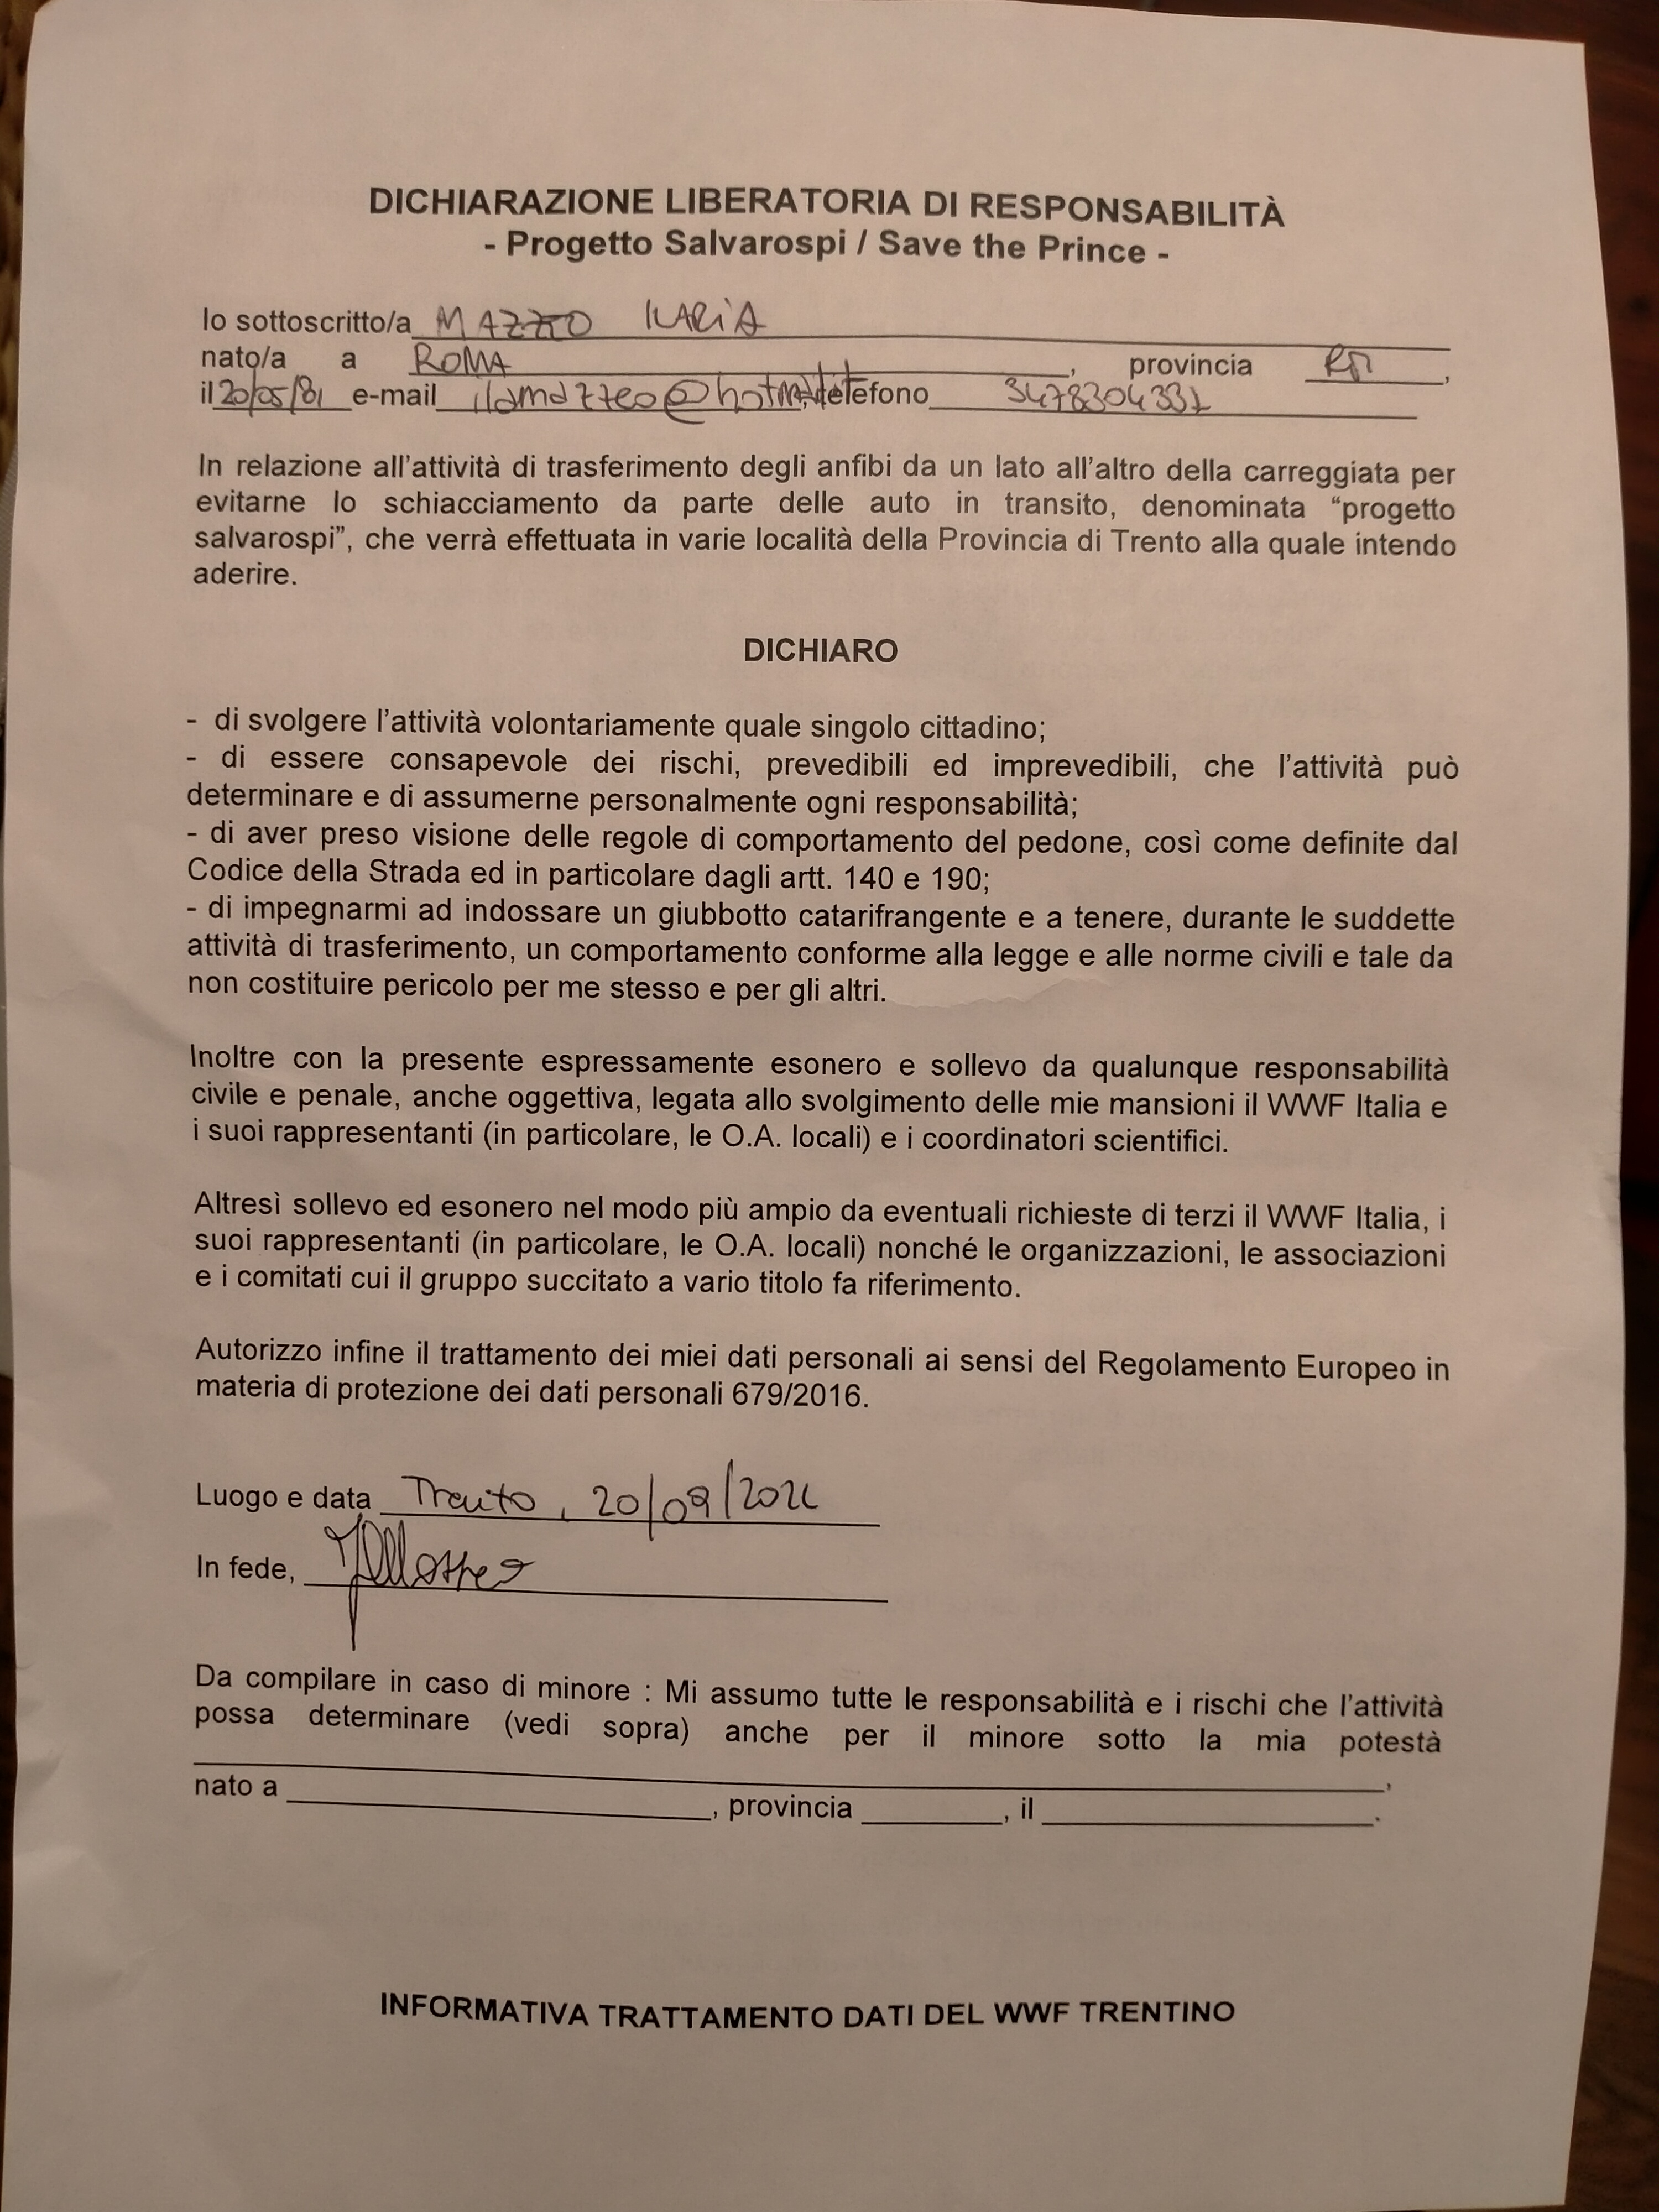 DICHIARAZIONE LIBERATORIA DI RESPONSABILITÀ
- Progetto Salvarospi / Save the Prince -
Io sottoscritto/a MAZZEO ILARIA
nato/a a ROMA, provincia RM,
il 20/05/81 e-mail ilamazzeo@hotmail.it, telefono 3478304331
In relazione all'attività di trasferimento degli anfibi da un lato all'altro della carreggiata per
evitarne lo schiacciamento da parte delle auto in transito, denominata “progetto
salvarospi”, che verrà effettuata in varie località della Provincia di Trento alla quale intendo
aderire.
DICHIARO
- di svolgere l'attività volontariamente quale singolo cittadino;
- di essere consapevole dei rischi, prevedibili ed imprevedibili, che l'attività può
determinare e di assumerne personalmente ogni responsabilità;
- di aver preso visione delle regole di comportamento del pedone, così come definite dal
Codice della Strada ed in particolare dagli artt. 140 e 190;
- di impegnarmi ad indossare un giubbotto catarifrangente e a tenere, durante le suddette
attività di trasferimento, un comportamento conforme alla legge e alle norme civili e tale da
non costituire pericolo per me stesso e per gli altri.
Inoltre con la presente espressamente esonero e sollevo da qualunque responsabilità
civile e penale, anche oggettiva, legata allo svolgimento delle mie mansioni il WWF Italia e
i suoi rappresentanti (in particolare, le O.A. locali) e i coordinatori scientifici.
Altresì sollevo ed esonero nel modo più ampio da eventuali richieste di terzi il WWF Italia, i
suoi rappresentanti (in particolare, le O.A. locali) nonché le organizzazioni, le associazioni
e i comitati cui il gruppo succitato a vario titolo fa riferimento.
Autorizzo infine il trattamento dei miei dati personali ai sensi del Regolamento Europeo in
materia di protezione dei dati personali 679/2016.
Luogo e data Trento, 20/09/202
In fede,
Da compilare in caso di minore : Mi assumo tutte le responsabilità e i rischi che l'attività
possa determinare (vedi sopra) anche per il minore sotto la mia potestà
,
nato a , provincia , il .
INFORMATIVA TRATTAMENTO DATI DEL WWF TRENTINO